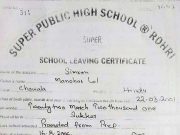 SUPER PUBLIC HIGH SCHOOL ® ROHRI
SUPER
SCHOOL LEAVING CERTIFICATE
Simran
Manohar Lal
Chawla Hindu
22-03-2001
Twenty two March Two thousand one
Sukkur
Promoted from Prep